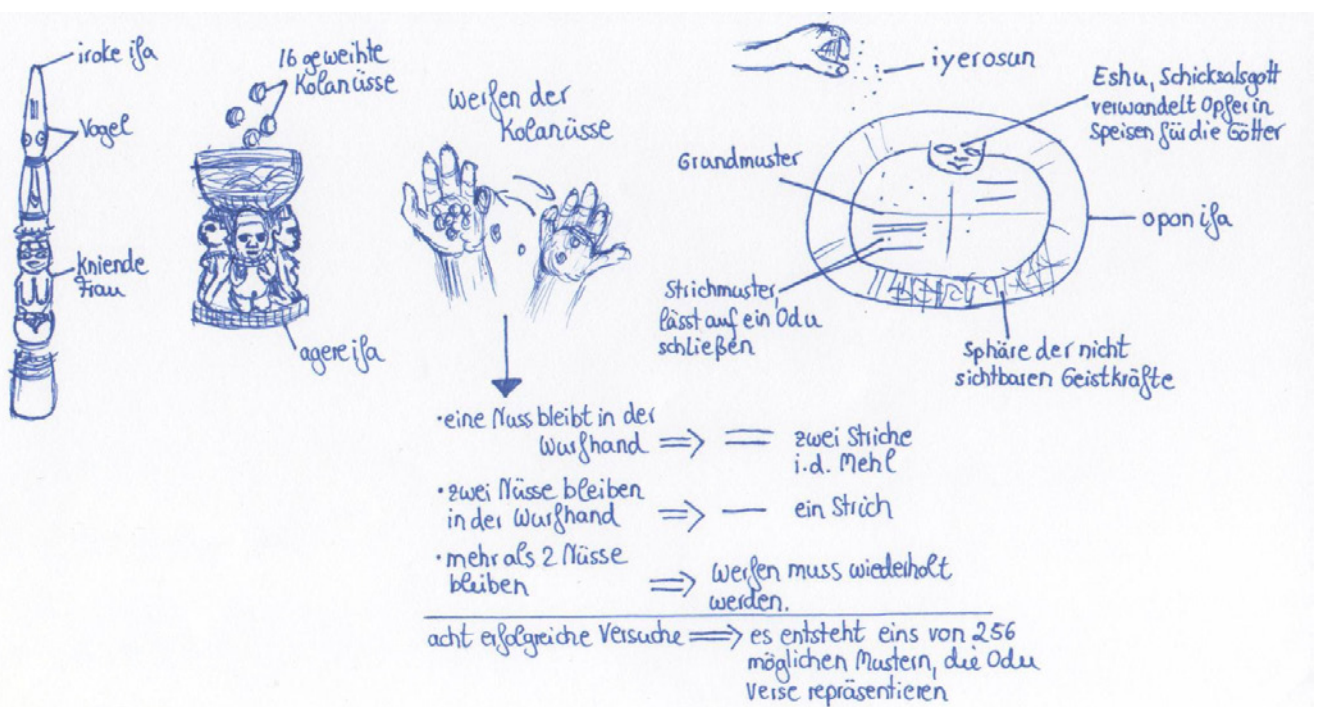 iroke ifa
Vogel
kniende
Frau
16 geweihte
Kolanüsse
agere ifa
Werfen der
Kolanüsse
iyerosun
Eshu, Schicksalsgott
verwandelt Opfer in
Speisen für die Götter
Grundmuster
opon ifa
Strichmuster,
lässt auf ein Odu
schließen
Sphäre der nicht
sichtbaren Geistkräfte
•eine Nuss bleibt in der
Wurfhand ⇒ = zwei Striche
i.d. Mehl
•zwei Nüsse bleiben
in der Wurfhand ⇒ — ein Strich
•mehr als 2 Nüsse
bleiben ⇒ Werfen muss wiederholt
werden.
acht erfolgreiche Versuche ⇒ es entsteht eins von 256
möglichen Mustern, die Odu
Verse repräsentieren